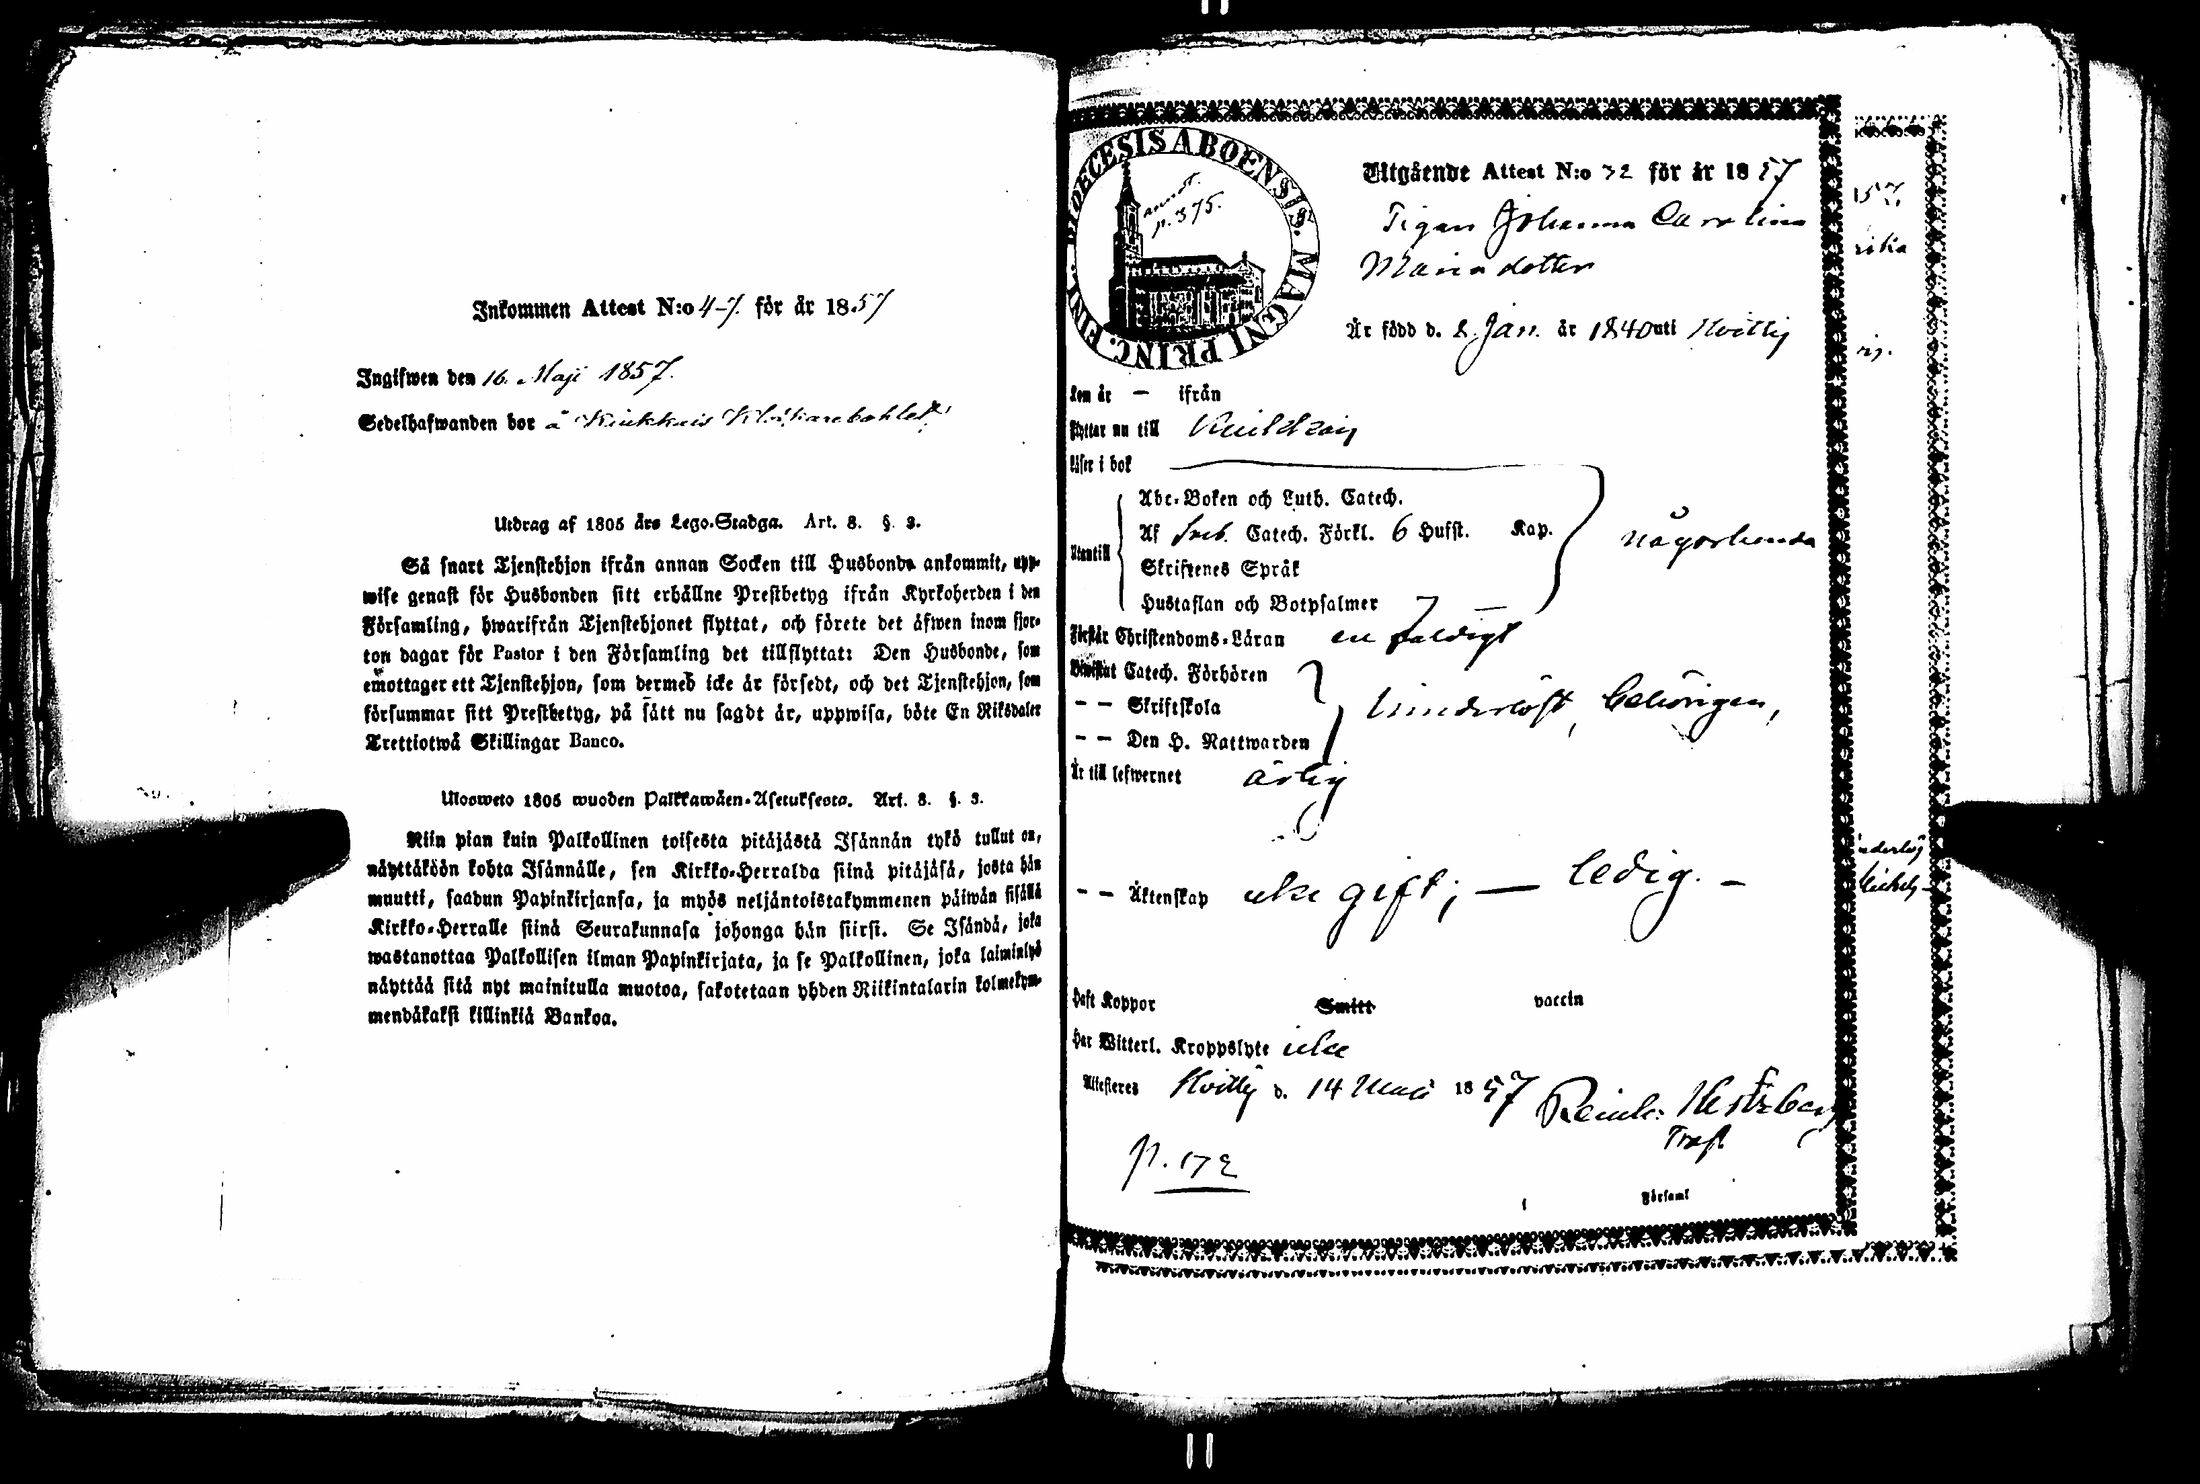 Inkommen Attest N:o 47. för år 1857
Ingifwen den 16. Maji 1857.
Sedelhafwanden bor å Kiukkais Klåkarebohlet
Utdrag af 1805 års Lego-Stadga. Art. 8. §. 3.
Så snart Tjenstehjon ifrån annan Socken till Husbonde ankommit, upp-
wise genast för Husbonden sitt erhållne Prestbetyg ifrån Kyrkoherden i den
Församling, hwarifrån Tjenstehjonet flyttat, och förete det äfwen inom fjor-
ton dagar för Pastor i den Församling det tillflyttat: Den Husbonde, som
emottager ett Tjenstehjon, som dermed icke är försedt, och det Tjenstehjon, som
försummar sitt Prestbetyg, på sätt nu sagdt är, uppwisa, böte En Riksdaler
Trettiotwå Skillingar Banco.
Ulosweto 1805 wuoden Palkkawäen-Asetuksesta. Art. 8. §. 3.
Niin pian kuin Palkollinen toisesta pitäjästä Isännän tykö tullut on,
näyttäköön kohta Isännälle, sen Kirkko-Herralda siinä pitäjäsä, josta hän
muutti, saadun Papinkirjansa, ja myös neljäntoistakymmenen päiwän sisällä
Kirkko-Herralle siinä Seurakunnasa johonga hän siirsi. Se Isändä, joka
wastanottaa Palkollisen ilman Papinkirjata, ja se Palkollinen, joka laiminlyö
näyttää sitä nyt mainitulla muotoa, sakotetaan yhden Riikintalarin kolmekym-
mendäkaksi killinkiä Bankoa.
DIOECESIS ABOENSIS. MAGNI PRINC. FINL.
annot.
p. 375.
Utgående Attest N:o 32 för år 1857
Pigan Johanna Carolina
Mariadotter
Är född d. 2 Jan. år 1840 uti Hvittis
kom år — ifrån
flyttar nu till
läser i bok
Utantill
Abc-Boken och Luth. Catech.
Af Sveb. Catech. Förkl. 6 Hufst. Kap. någorlunda
Skriftenes Språk
Hustaflan och Botpsalmer
Förstår Christendoms-Läran enfaldigt
Biwistat Catech. Förhören
— — Skriftskola hinderlöst, behörigen,
— — Den H. Nattwarden
Är till lefwernet ärlig
— — Äktenskap icke gift; — ledig. —
Haft Koppor Smitt vaccin
Har Witterl. Kroppslyte icke
Attesteres Hvittis d. 14 Maii 1857 Reinh: Hertzberg
Præp.
p. 172
Församl
157
rika